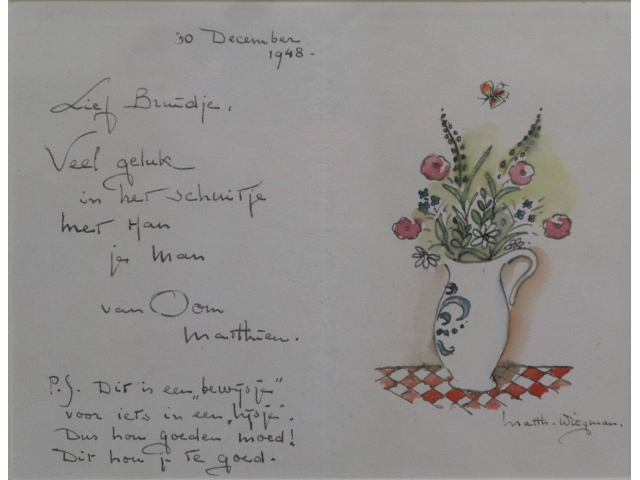 30 December
1948-
Lief Bruidje,
Veel geluk
in het schuitje
met Han
je Man
van Oom
Matthieu.
P.S. Dit is een „bewijsje"
voor iets in een „lijsje".
Dus hou goeden moed!
Dit hou je te goed-
Matth. Wiegman.